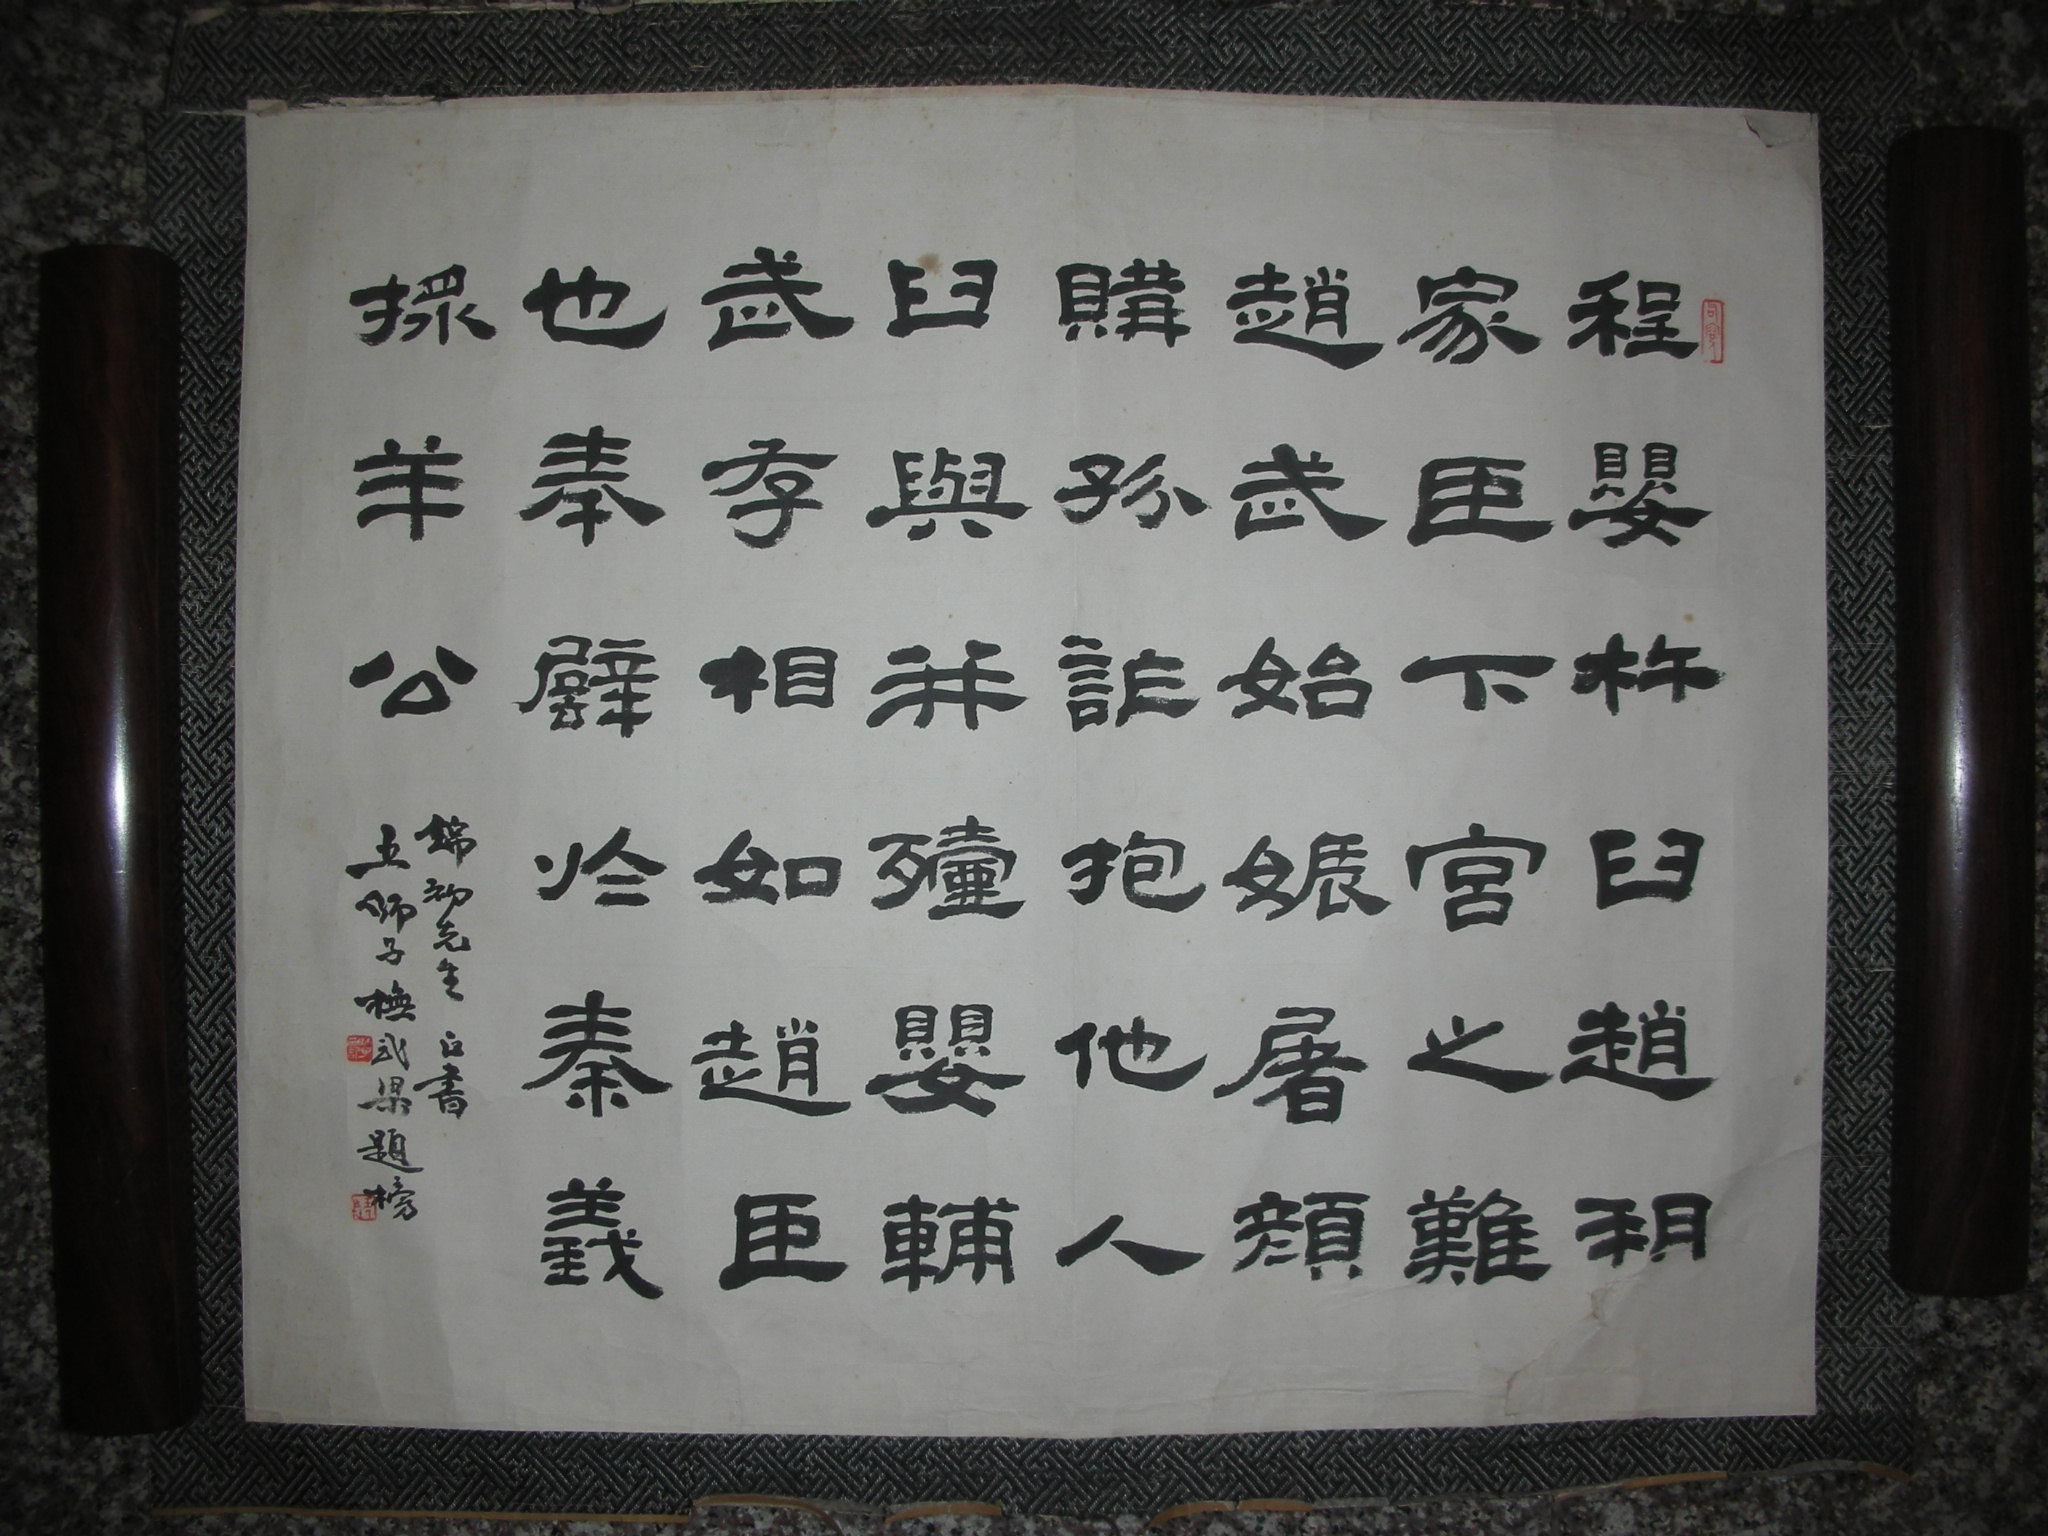 程嬰杵臼趙朔
家臣下宮之難
趙武始娠屠顏
購孫詐抱他人
臼與并殪嬰輔
武存相如趙臣
也奉璧於秦義
羊公
初先生正書
王師子橅武梁題榜